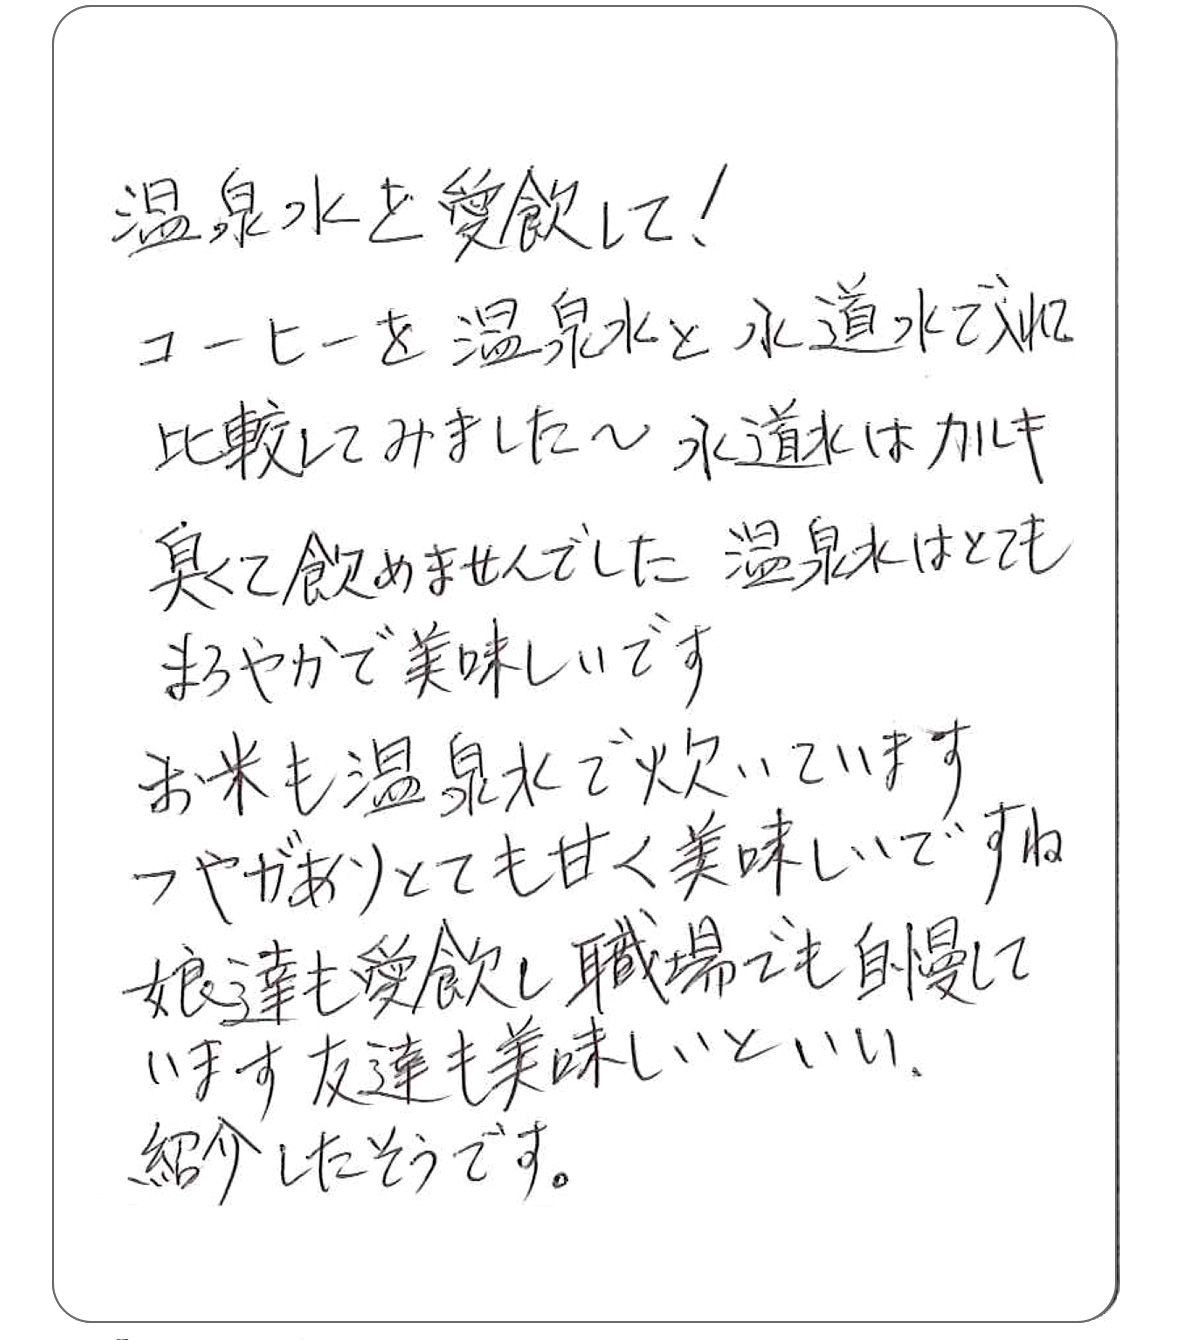 温泉水を愛飲して!
コーヒーを温泉水と水道水で入れて
比較してみました〜水道水はカルキ
臭くて飲めませんでした 温泉水はとても
まろやかで美味しいです
お米も温泉水で炊いています
つやがありとても甘く美味しいですね
娘達も愛飲し職場でも自慢して
います友達も美味しいといい、
紹介したそうです。